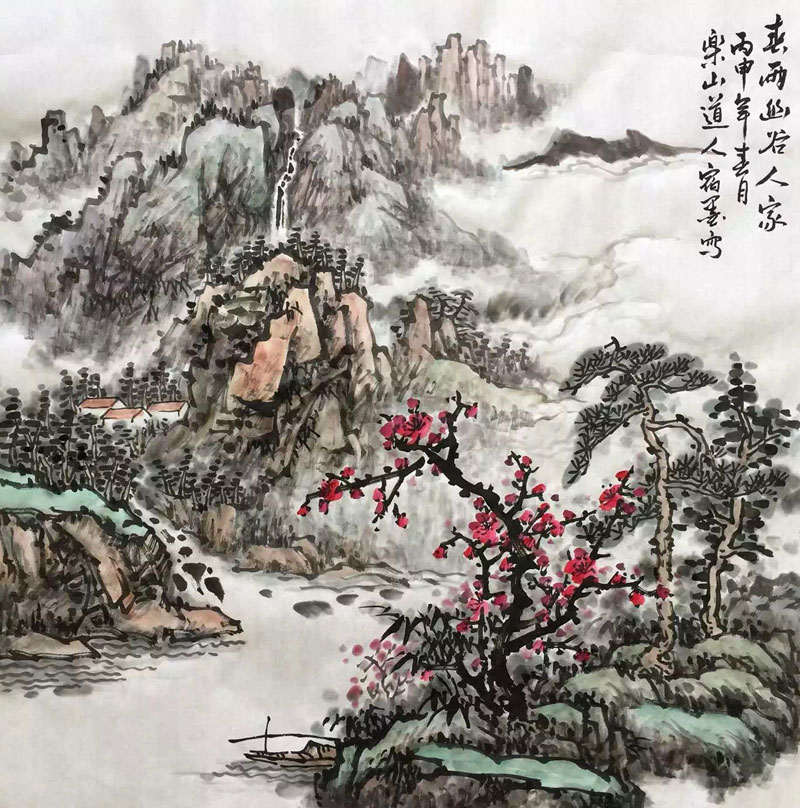 春雨幽谷人家
丙申年春月
樂山道人宿墨写